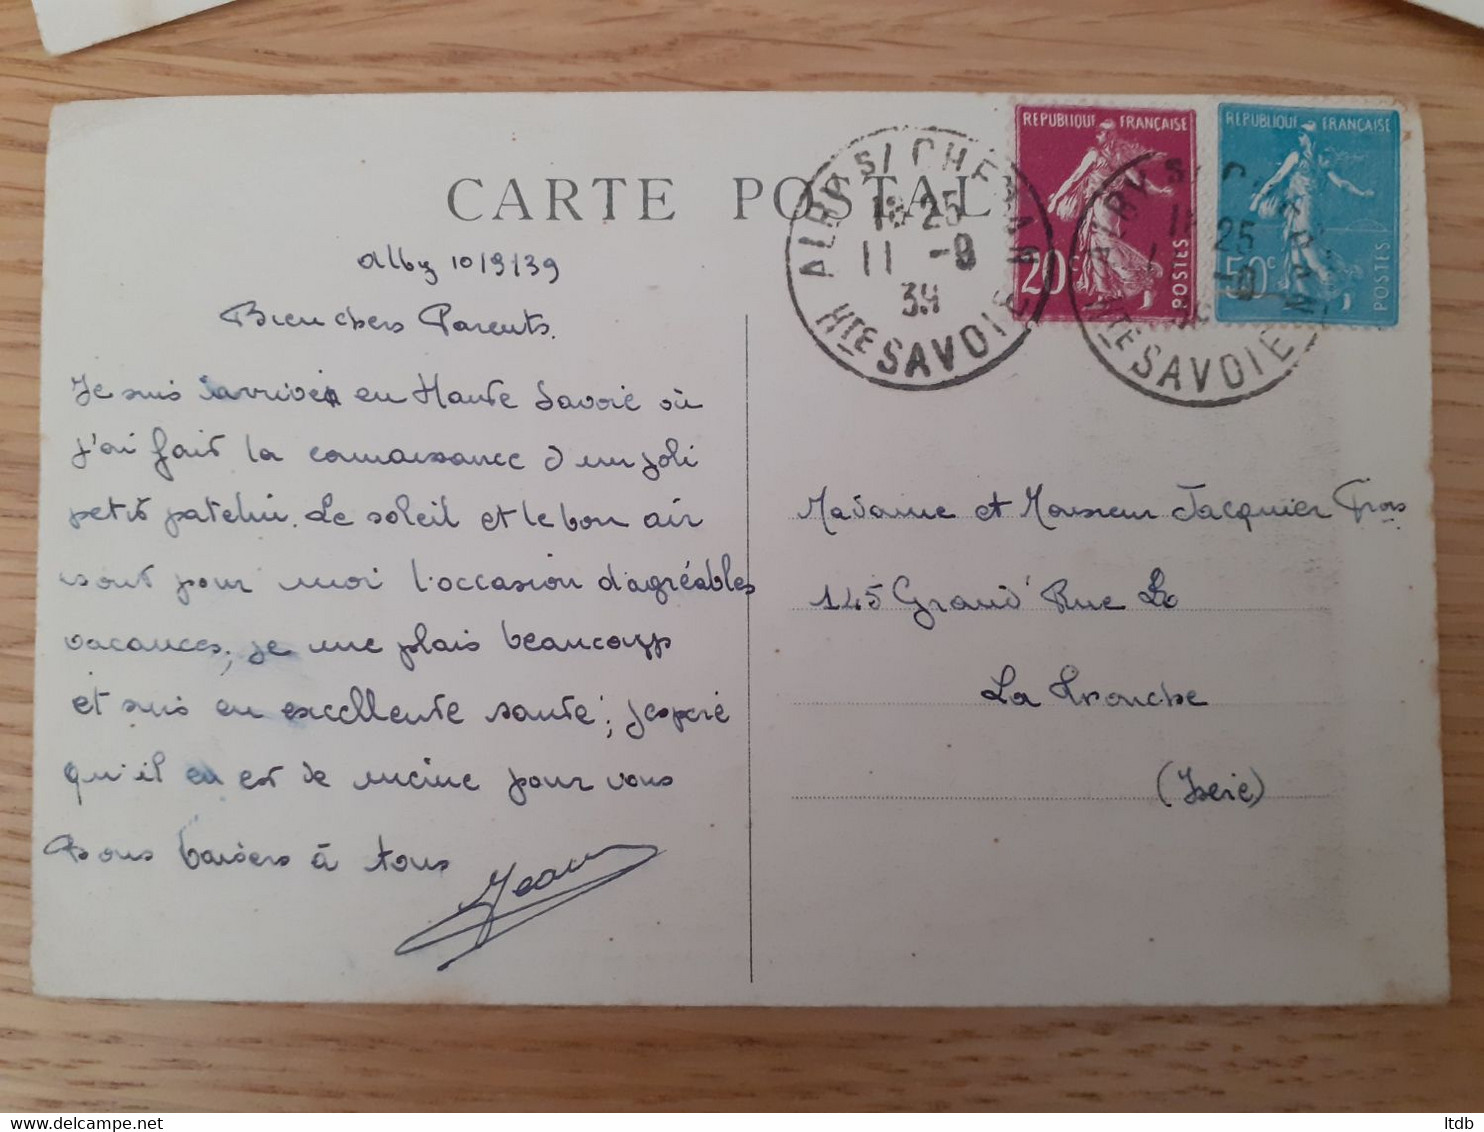 CARTE POSTALE
ALBY S/ CHERAN
18 25
11 -9
39
HTE SAVOIE
REPUBLIQUE FRANÇAISE
20c
POSTES
ALBY S/
25
HTE SAVOIE
REPUBLIQUE FRANÇAISE
50c
POSTES
Alby 10/9/39
Bien chers Parents.
Je suis arrivé en Haute Savoie où
j'ai fait la connaissance d'un joli
petit patelin. Le soleil et le bon air
sont pour moi l'occasion d'agréables
vacances, je me plais beaucoup
et suis en excellente santé; j'espère
qu'il en est de même pour vous
Bons baisers à tous
Jean
Madame et Monsieur Jacquier Frois
145 Grand' Rue La
La Tronche
(Isère)
ltdb